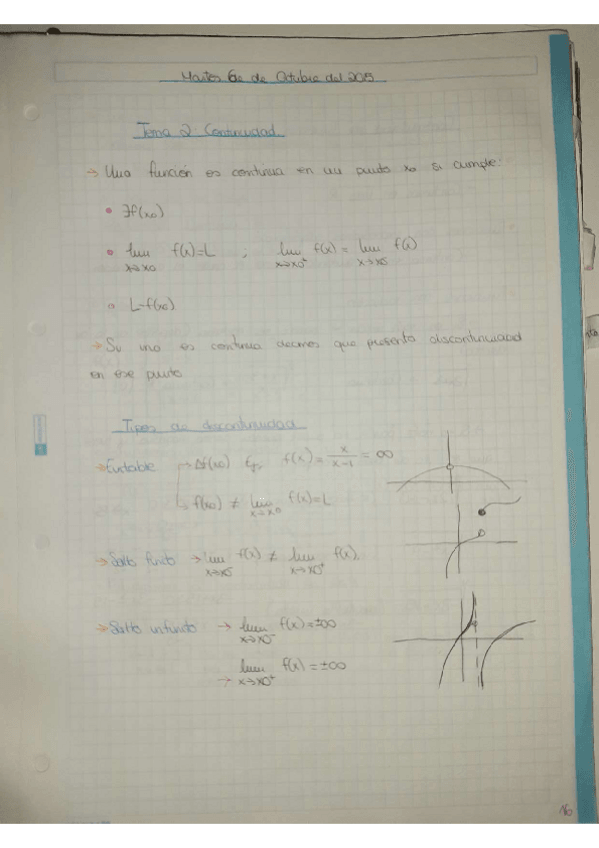 Martes 6 de Octubre del 2015
Tema 2: Continuidad.
→ Una función es continua en un punto x0 si cumple:
• ∃f(x0)
• lim x→x0 f(x)=L ; lim x→x0⁺ f(x) = lim x→x0⁻ f(x)
• L=f(x0)
→ Si no es continua decimos que presenta discontinuidad
en ese punto
Tipos de discontinuidad
→ Evitable → ∄f(x0) Ej. f(x) = x/x-1 = ∞
↳ f(x0) ≠ lim x→x0 f(x)=L
→ Salto finito → lim x→x0⁻ f(x) ≠ lim x→x0⁺ f(x).
→ Salto infinito → lim x→x0⁻ f(x) = ±∞
→ lim x→x0⁺ f(x) = ±∞
16